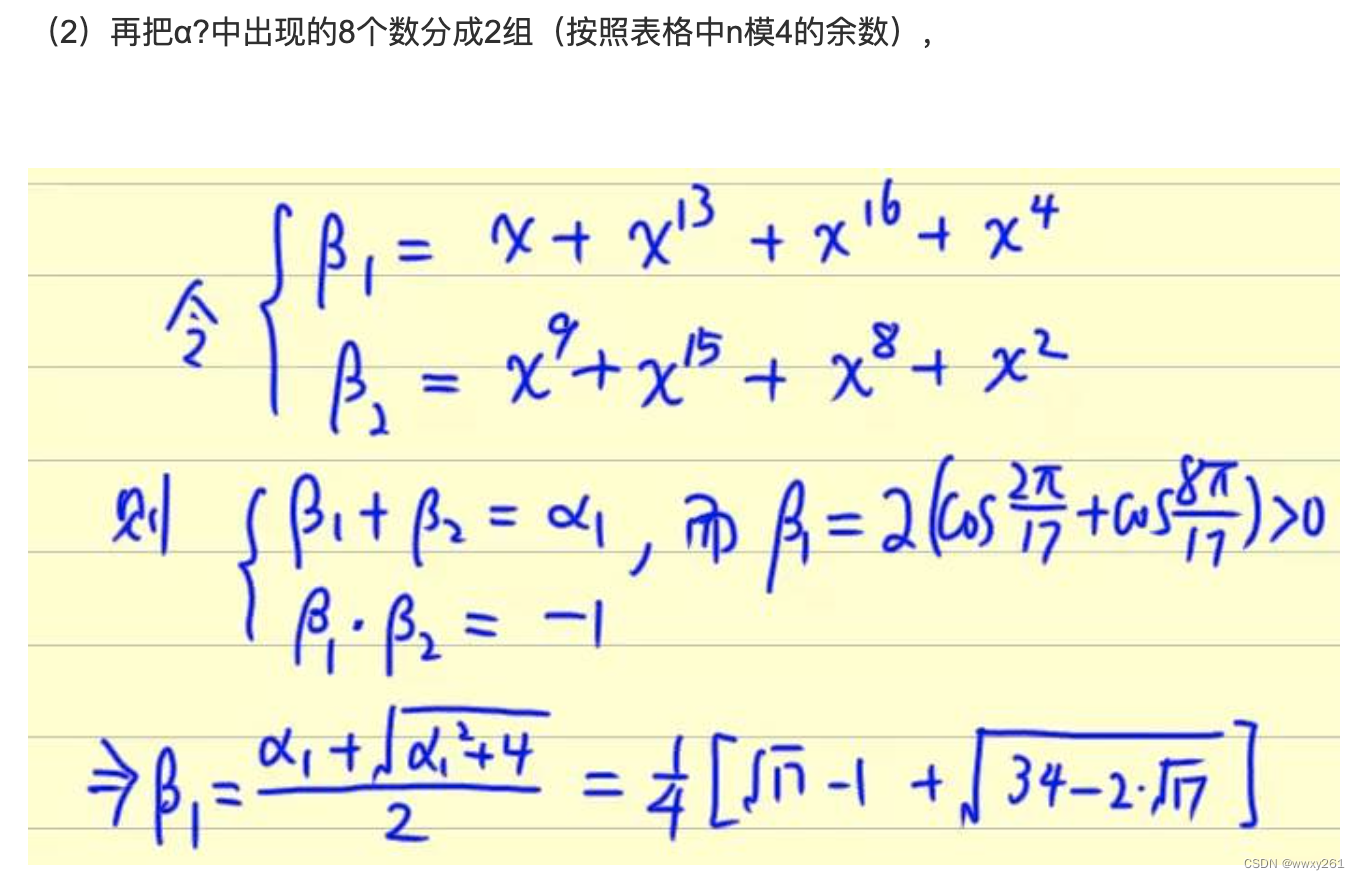 （2）再把α?中出现的8个数分成2组（按照表格中n模4的余数），
令 { β₁ = x + x¹³ + x¹⁶ + x⁴
β₂ = x⁹ + x¹⁵ + x⁸ + x²
则 { β₁ + β₂ = α₁ , 而 β₁ = 2(cos 2π/17 + cos 8π/17) > 0
β₁ · β₂ = -1
⇒ β₁ = (α₁ + √(α₁² + 4))/2 = 1/4 [√17 - 1 + √(34 - 2·√17)]
CSDN @wwxy261